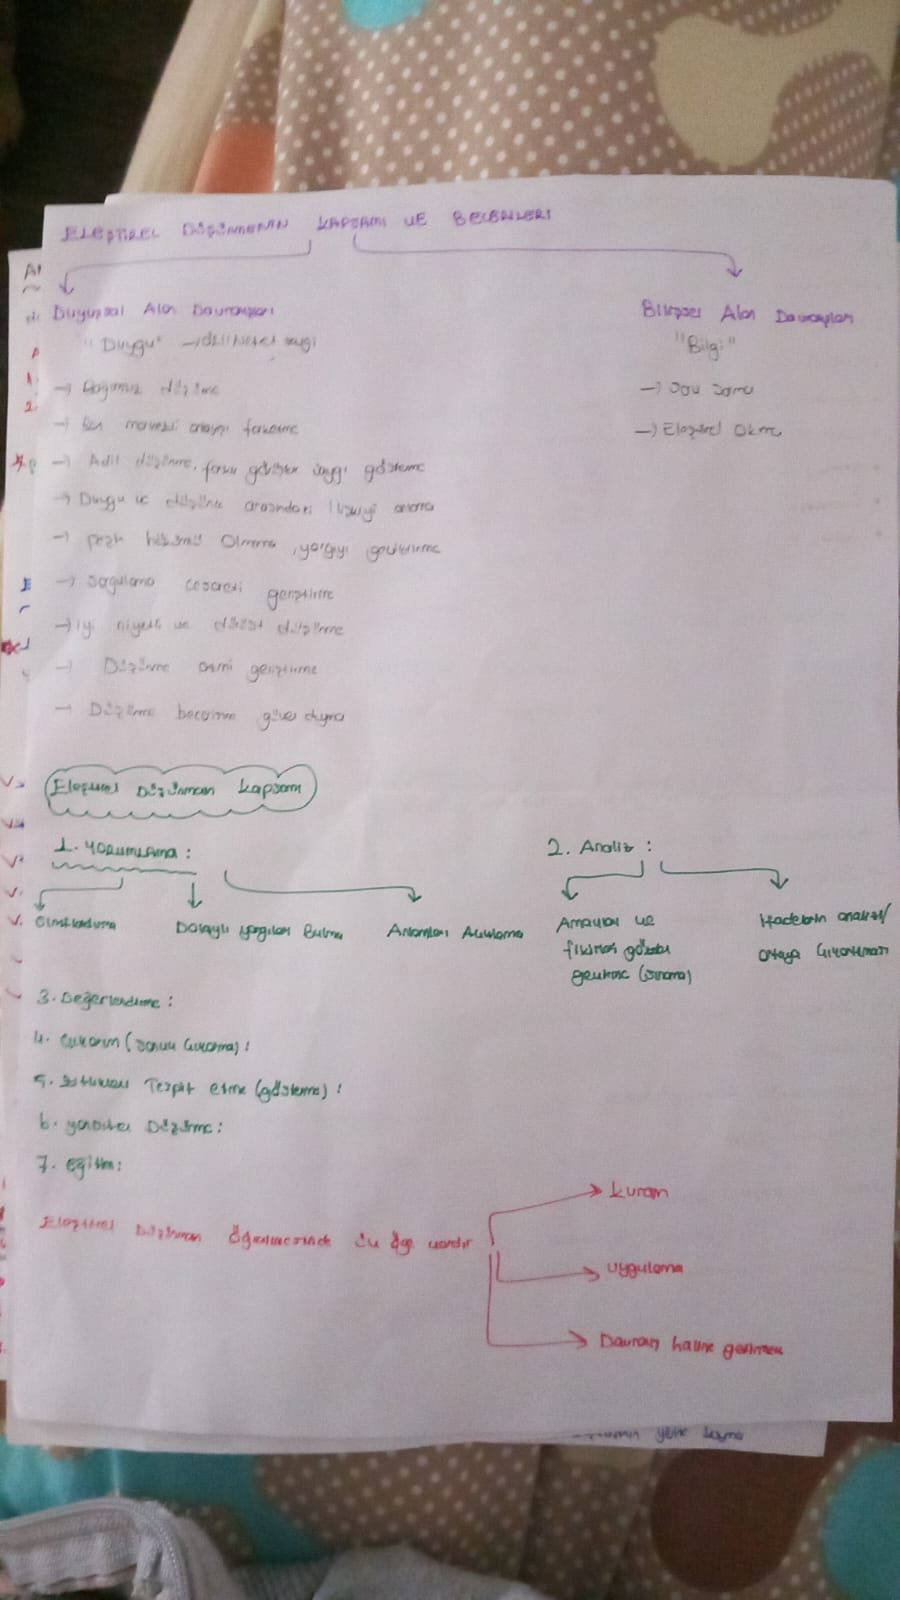 ELEŞTİREL DÜŞÜNMENİN KAPSAMI VE BECERİLERİ
Duyuşsal Alan Davranışları
"Duygu" → sevgi
→ Bağımsız düşünme
→ Ben merkezli anlayışı farketme
→ Adil düşünme, farklı görüşlere saygı gösterme
→ Duygu ve düşünce arasındaki ilişkiyi anlama
→ Peşin hükümlü olmama, yargıyı geciktirme
→ Sorgulama cesareti geliştirme
→ İyi niyetli ve dürüst düşünme
→ Düşünme azmi geliştirme
→ Düşünme becerisine güven duyma
Bilişsel Alan Davranışları
"Bilgi"
→ Soru sorma
→ Eleştirel Okuma
Eleştirel Düşünmenin Kapsamı
1. YORUMLAMA :
Sınıflandırma
Dolaylı yargıları Bulma
Anlamları Açıklama
2. Analiz :
Amaçları ve
fikirleri gözden
geçirme (sınama)
İfadelerin analizi/
ortaya çıkartılması
3. Değerlendirme :
4. Çıkarım (sonuç çıkarma) :
5. Tespit etme (gösterme) :
6. yansıtıcı Düşünme :
7. eğitim :
Eleştirel Düşünmenin Öğretilmesinde üç öge vardır
→ kuram
→ uygulama
→ Davranış haline getirmek
yerine koyma